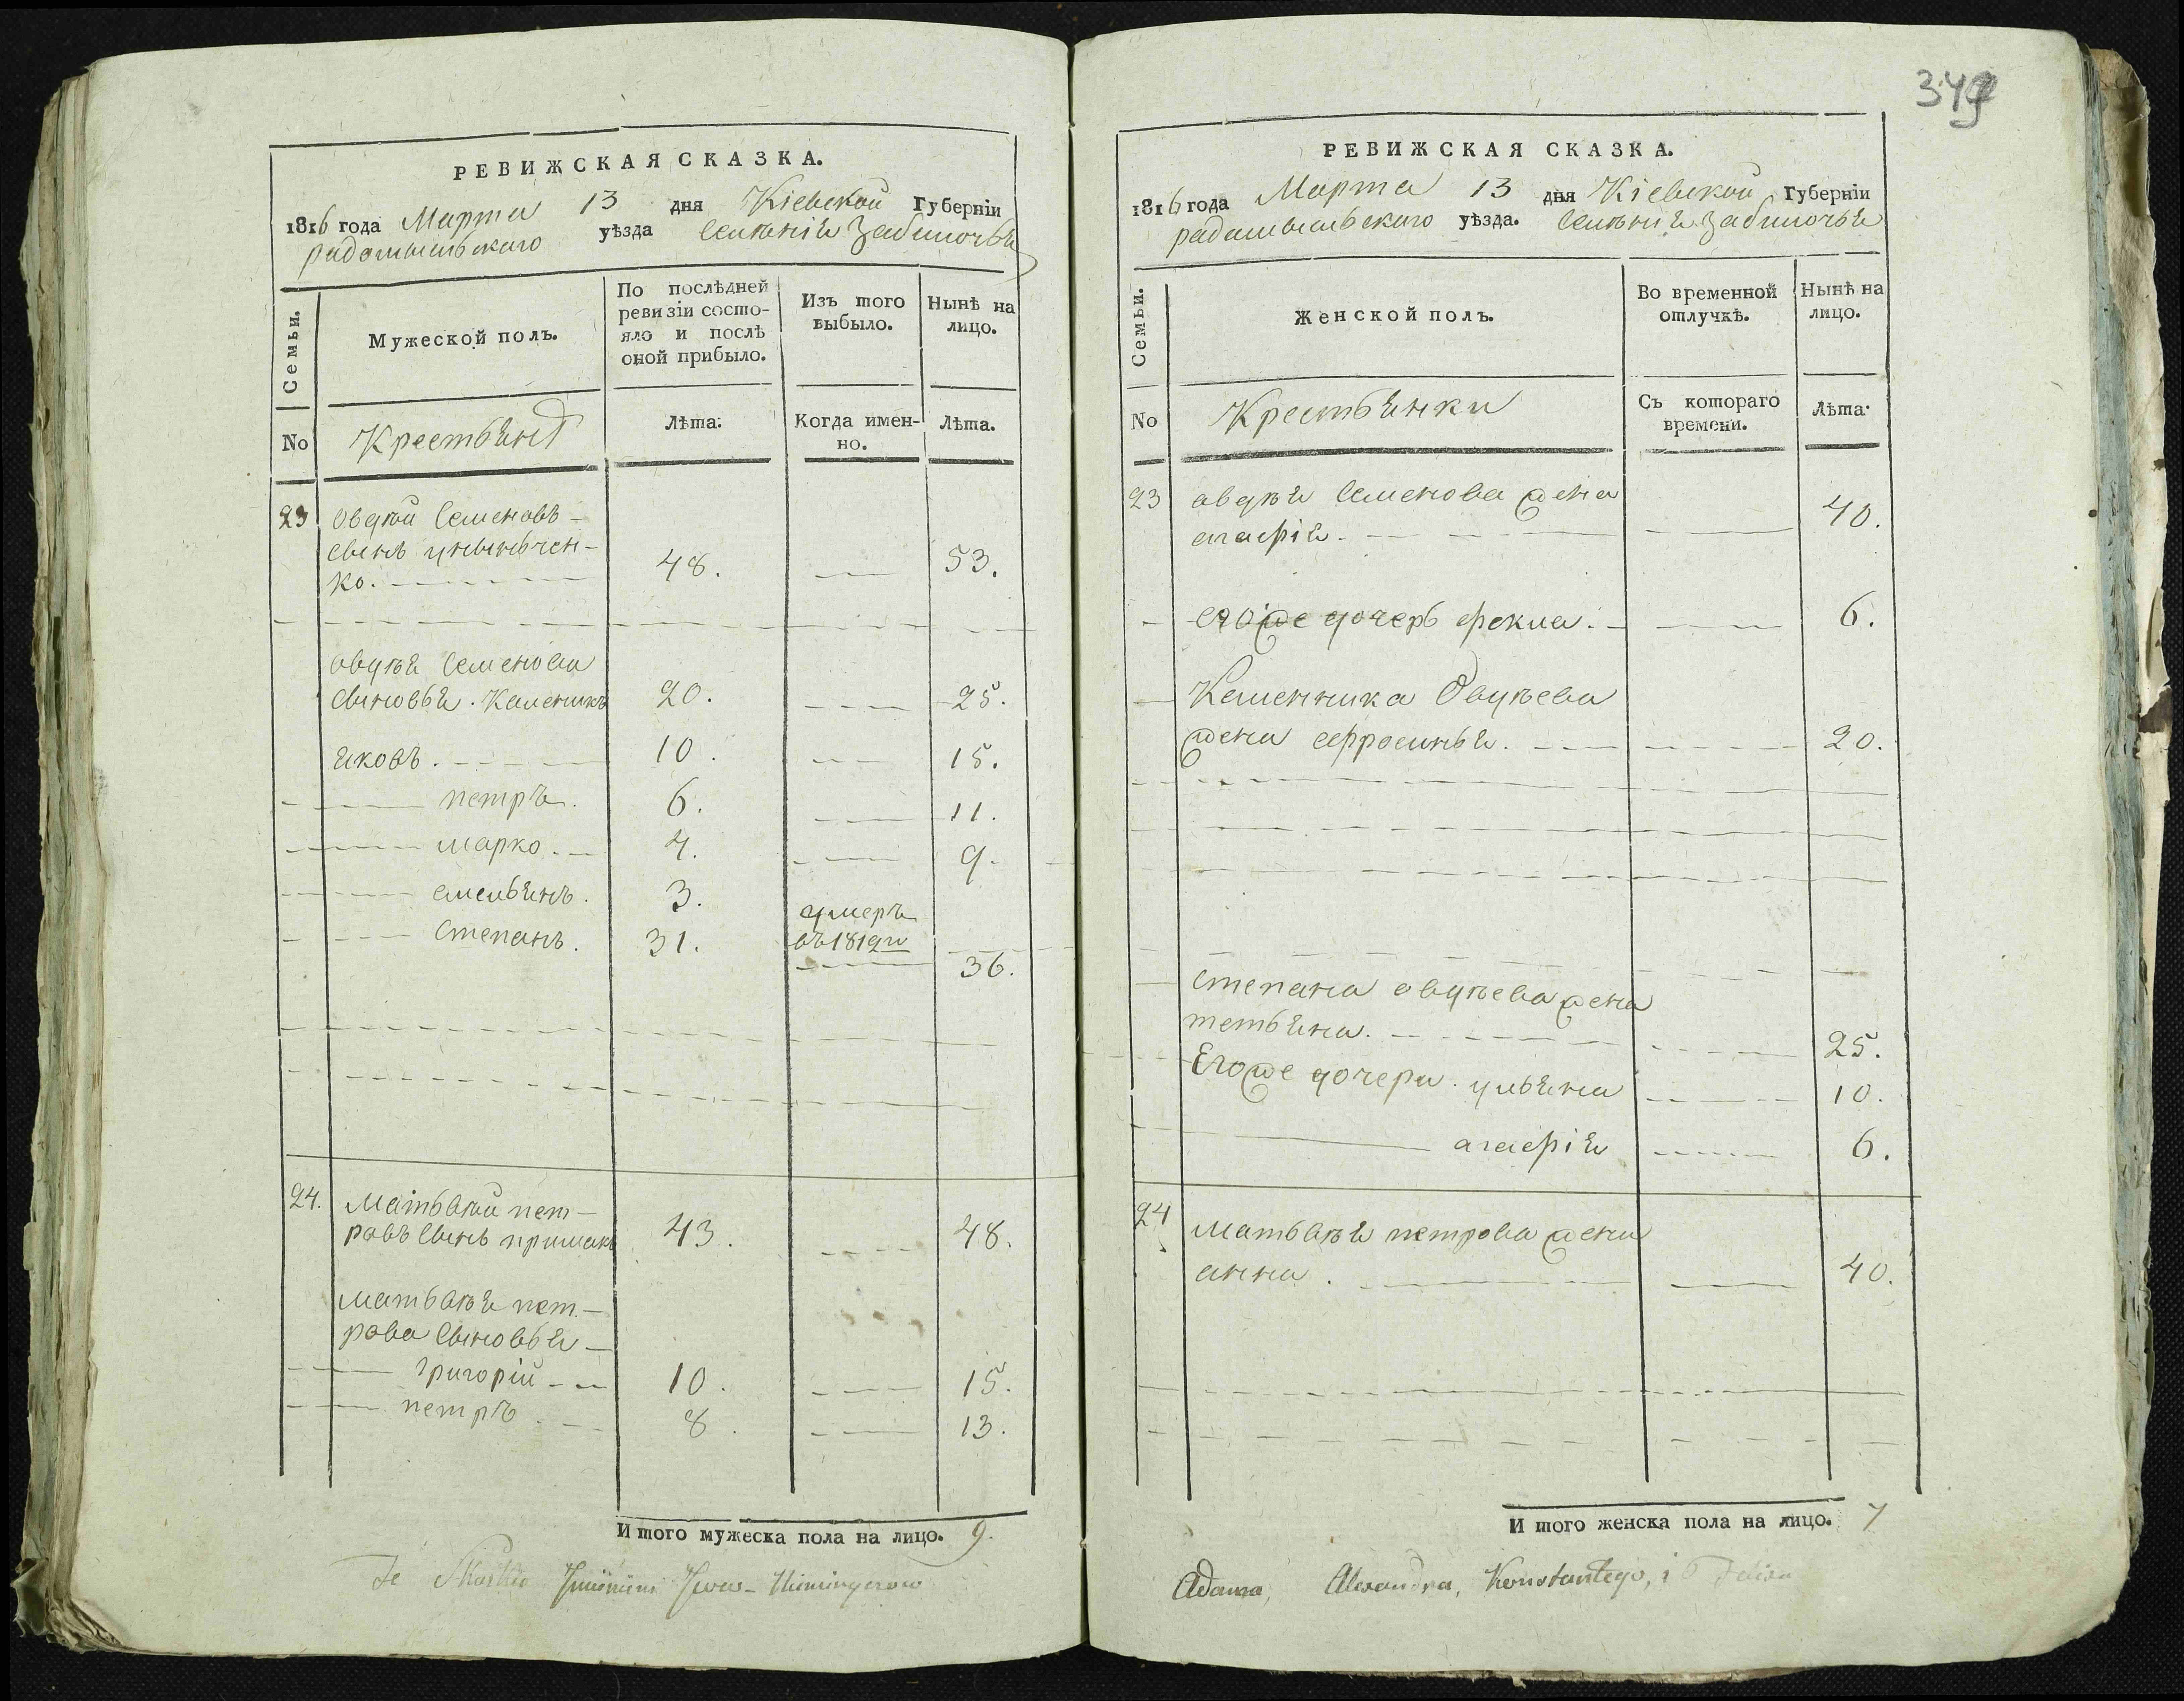 РЕВИЖСКАЯ СКАЗКА.
1816 года Марта 13 дня Кіевской Губерніи
радомысльского уѣзда селѣнія Забилочья
Семьи.
Мужеской полъ.
По послѣдней
ревизіи состо-
яло и послѣ
оной прибыло.
Изъ того
выбыло.
Нынѣ на
лицо.
No
Крестьянѣ
Лѣта.
Когда имен-
но.
Лѣта.
23 овдѣй Семеновъ
сынъ
ко. 48. 53.
овдѣя Семенова
сыновья. Каленикъ 20. 25.
яковъ. 10. 15.
петръ. 6. 11.
марко. 4. 9.
емельянъ. 3. умеръ
въ 1812м
Степанъ. 31. 36.
24. Матьвѣй пет-
ровъ сынъ примакъ 43. 48.
матьвѣя пет-
рова сыновья
григорій 10. 15.
петръ 8. 13.
Итого мужеска пола на лицо. 9.
349
РЕВИЖСКАЯ СКАЗКА.
1816 года Марта 13 дня Кіевской Губерніи
радомысльского уѣзда. селѣнія Забилочья
Семьи.
Женской полъ.
Во временной
отлучкѣ.
Нынѣ на
лицо.
No
Крестьянки
Съ котораго
времени.
Лѣта.
23 авдѣя Семенова жена
агафія. 40.
егоже дочерь фекла. 6.
Каленника Овдѣева
жена ефросинья. 20.
степана овдѣева жена
тетьяна. 25.
Егоже дочери. ульяна 10.
агафія 6.
24 матьвѣя петрова жена
анна. 40.
Итого женска пола на лицо. 7
Adama, Alexandra, Konstantego, i